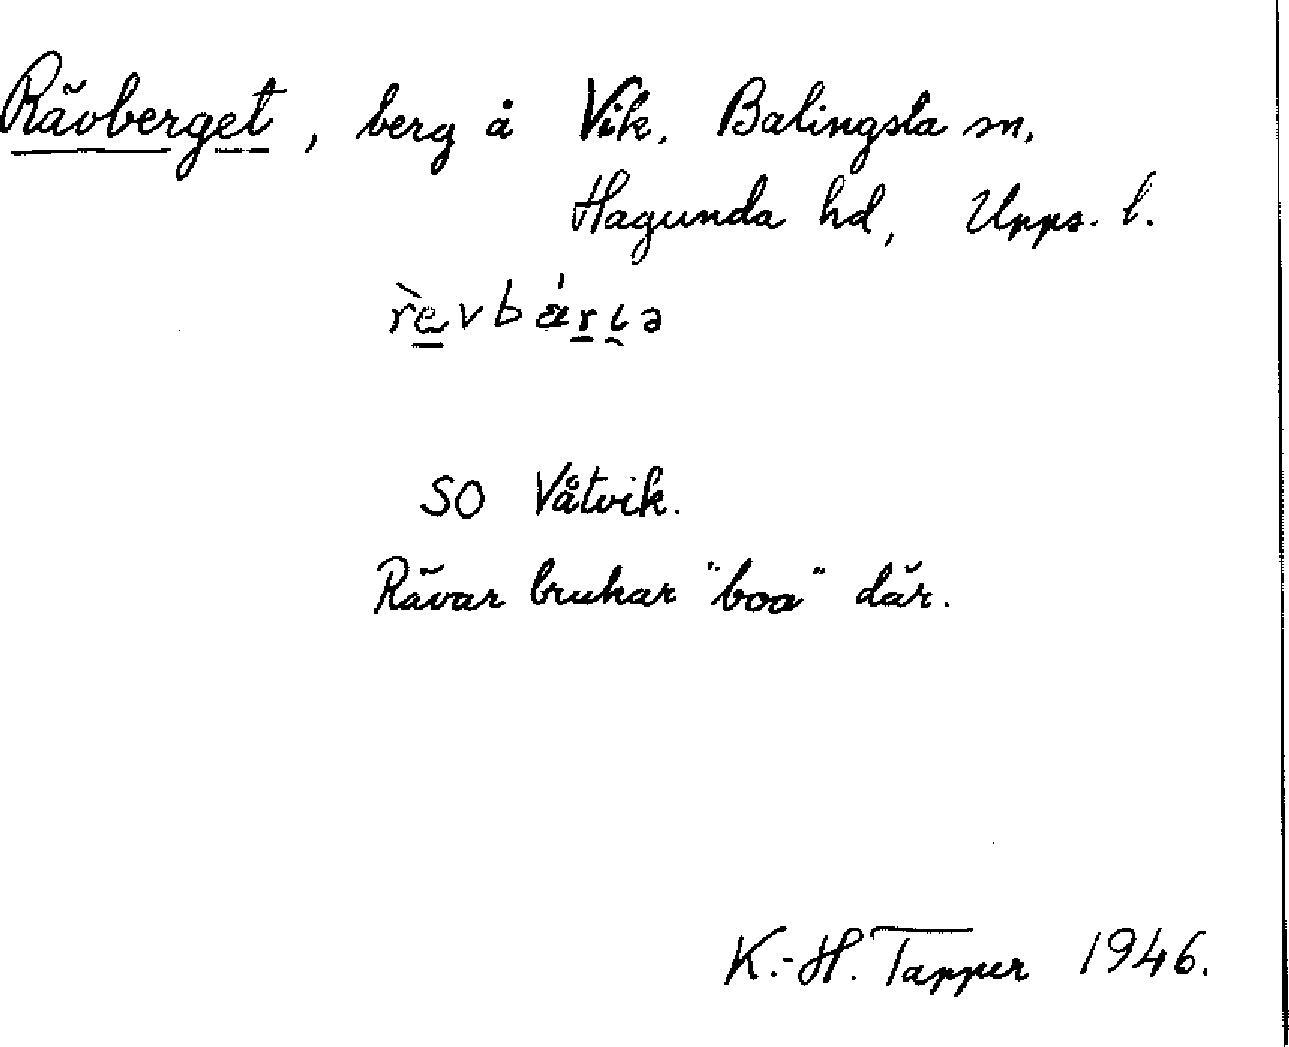 Rävberget, berg å Vik, Balingsta sn,
Hagunda hd, Upps. l.
SO Våtvik.
Rävar brukar "boa" där.
K.-H. Tapper 1946.